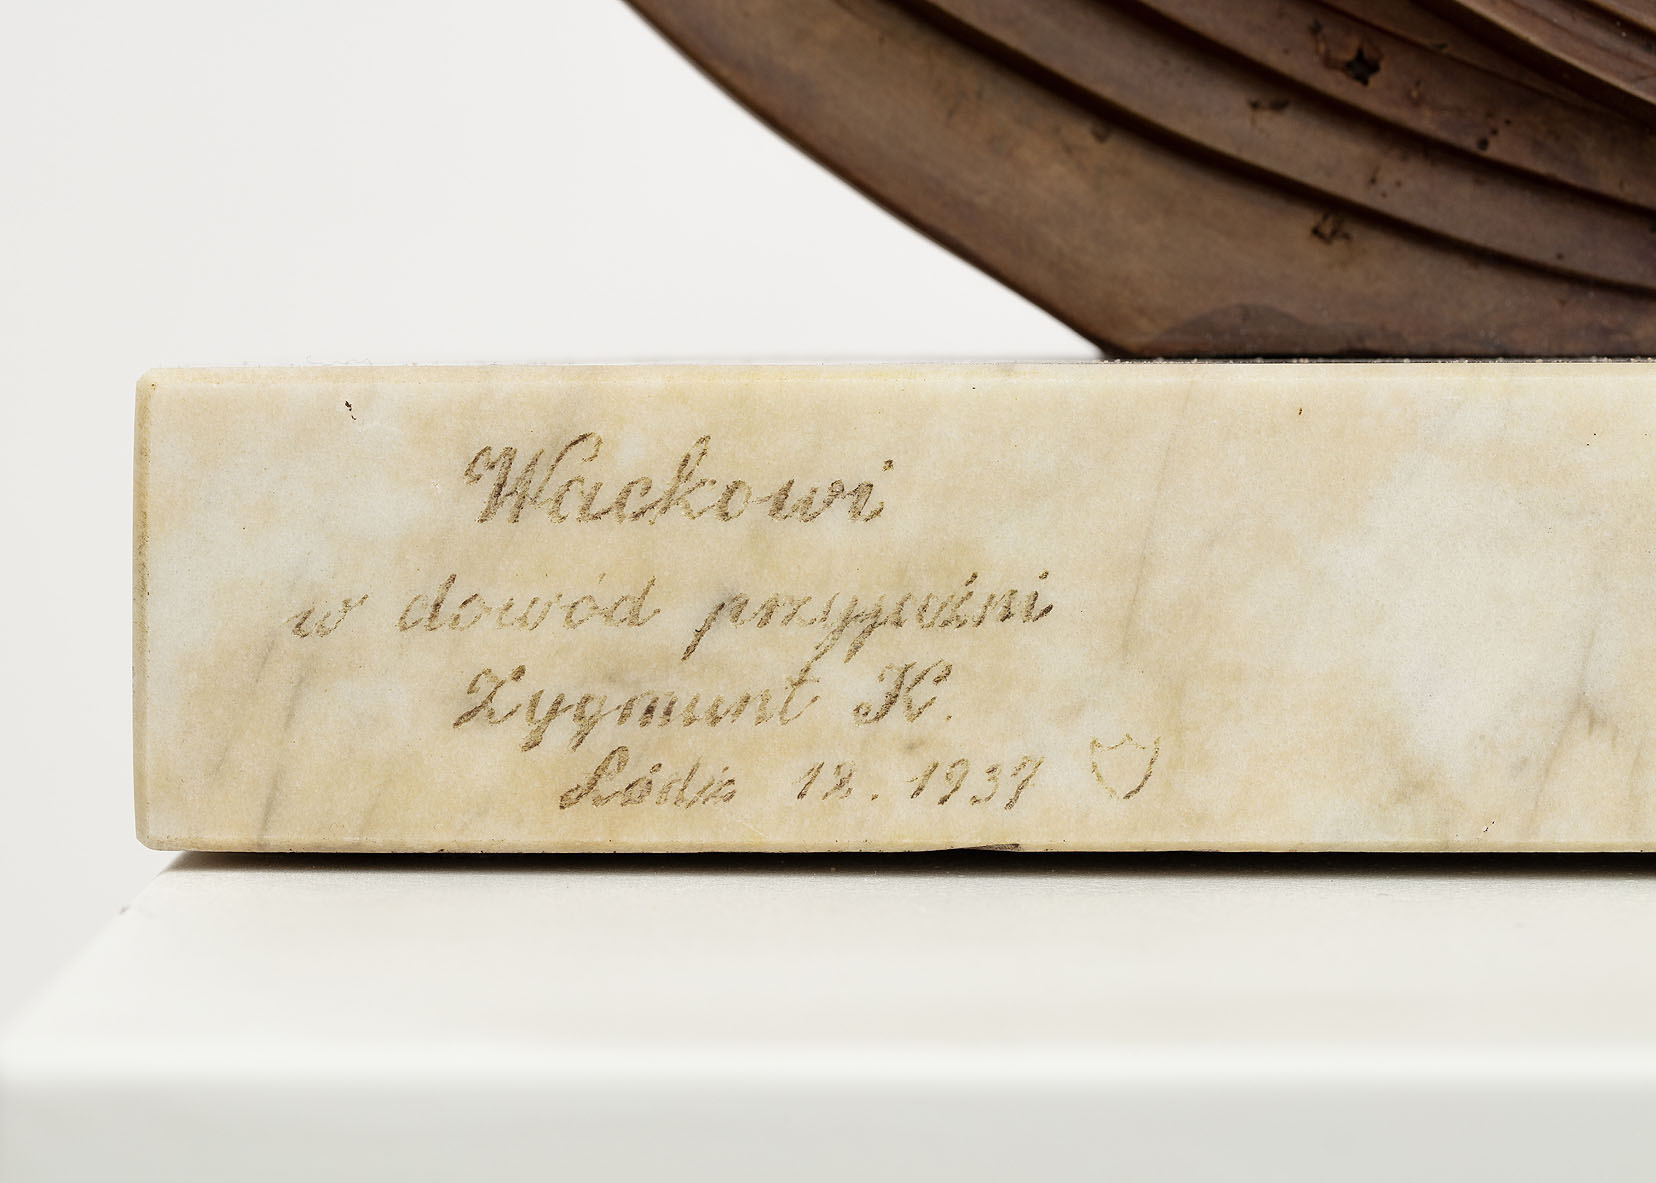 Wackowi
w dowód przyjaźni
Zygmunt K.
Łódź 12. 1937